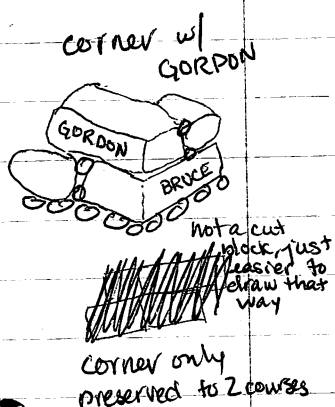 corner w/
GORDON
GORDON
BRUCE
not a cut
block, just
easier to
draw that
way
corner only
preserved to 2 courses